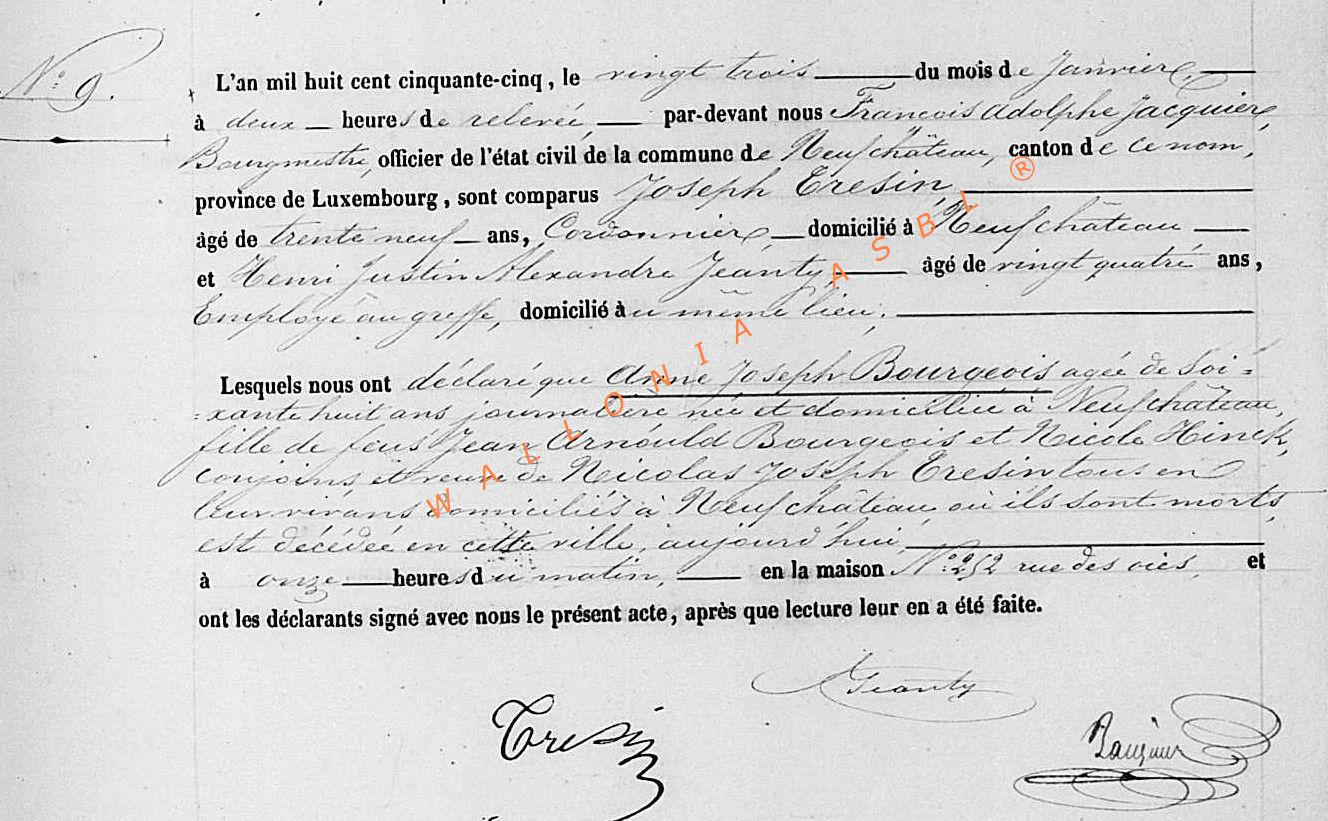 N.º 9.
L'an mil huit cent cinquante-cinq, le vingt trois du mois de Janvier,
à deux heures de relevée, par-devant nous François Adolphe Jacquier,
Bourgmestre, officier de l'état civil de la commune de Neufchâteau, canton de ce nom,
province de Luxembourg, sont comparus Joseph Tresin,
âgé de trente neuf ans, Cordonnier, domicilié à Neufchâteau
et Henri Justin Alexandre Jeanty, âgé de vingt quatre ans,
Employé au greffe, domicilié au même lieu;
Lesquels nous ont déclaré que Anne Joseph Bourgeois agée de Soi=
=xante huit ans journalière née et domiciliée à Neufchâteau,
fille de feus Jean Arnould Bourgeois et Nicole Hinck,
conjoins, et veuve de Nicolas Joseph Tresin tous en
leur vivans domiciliés à Neufchâteau où ils sont morts,
est décédée en cette ville, aujourd'hui,
à onze heures du matin, en la maison N.º 252 rue des oies, et
ont les déclarants signé avec nous le présent acte, après que lecture leur en a été faite.
Jeanty
Tresin
Jacquier
WALLONIA ASBL ®